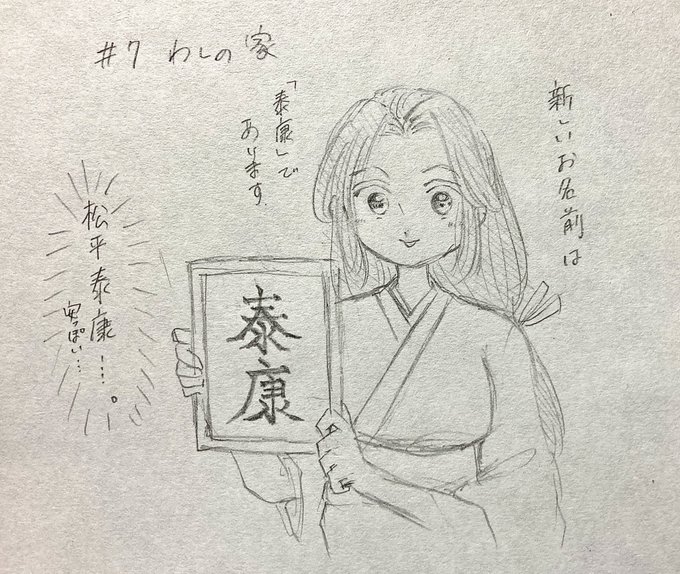 #7 わしの家
新しいお名前は
「泰康」で
あります
泰康
松平泰康…。
っぽい…